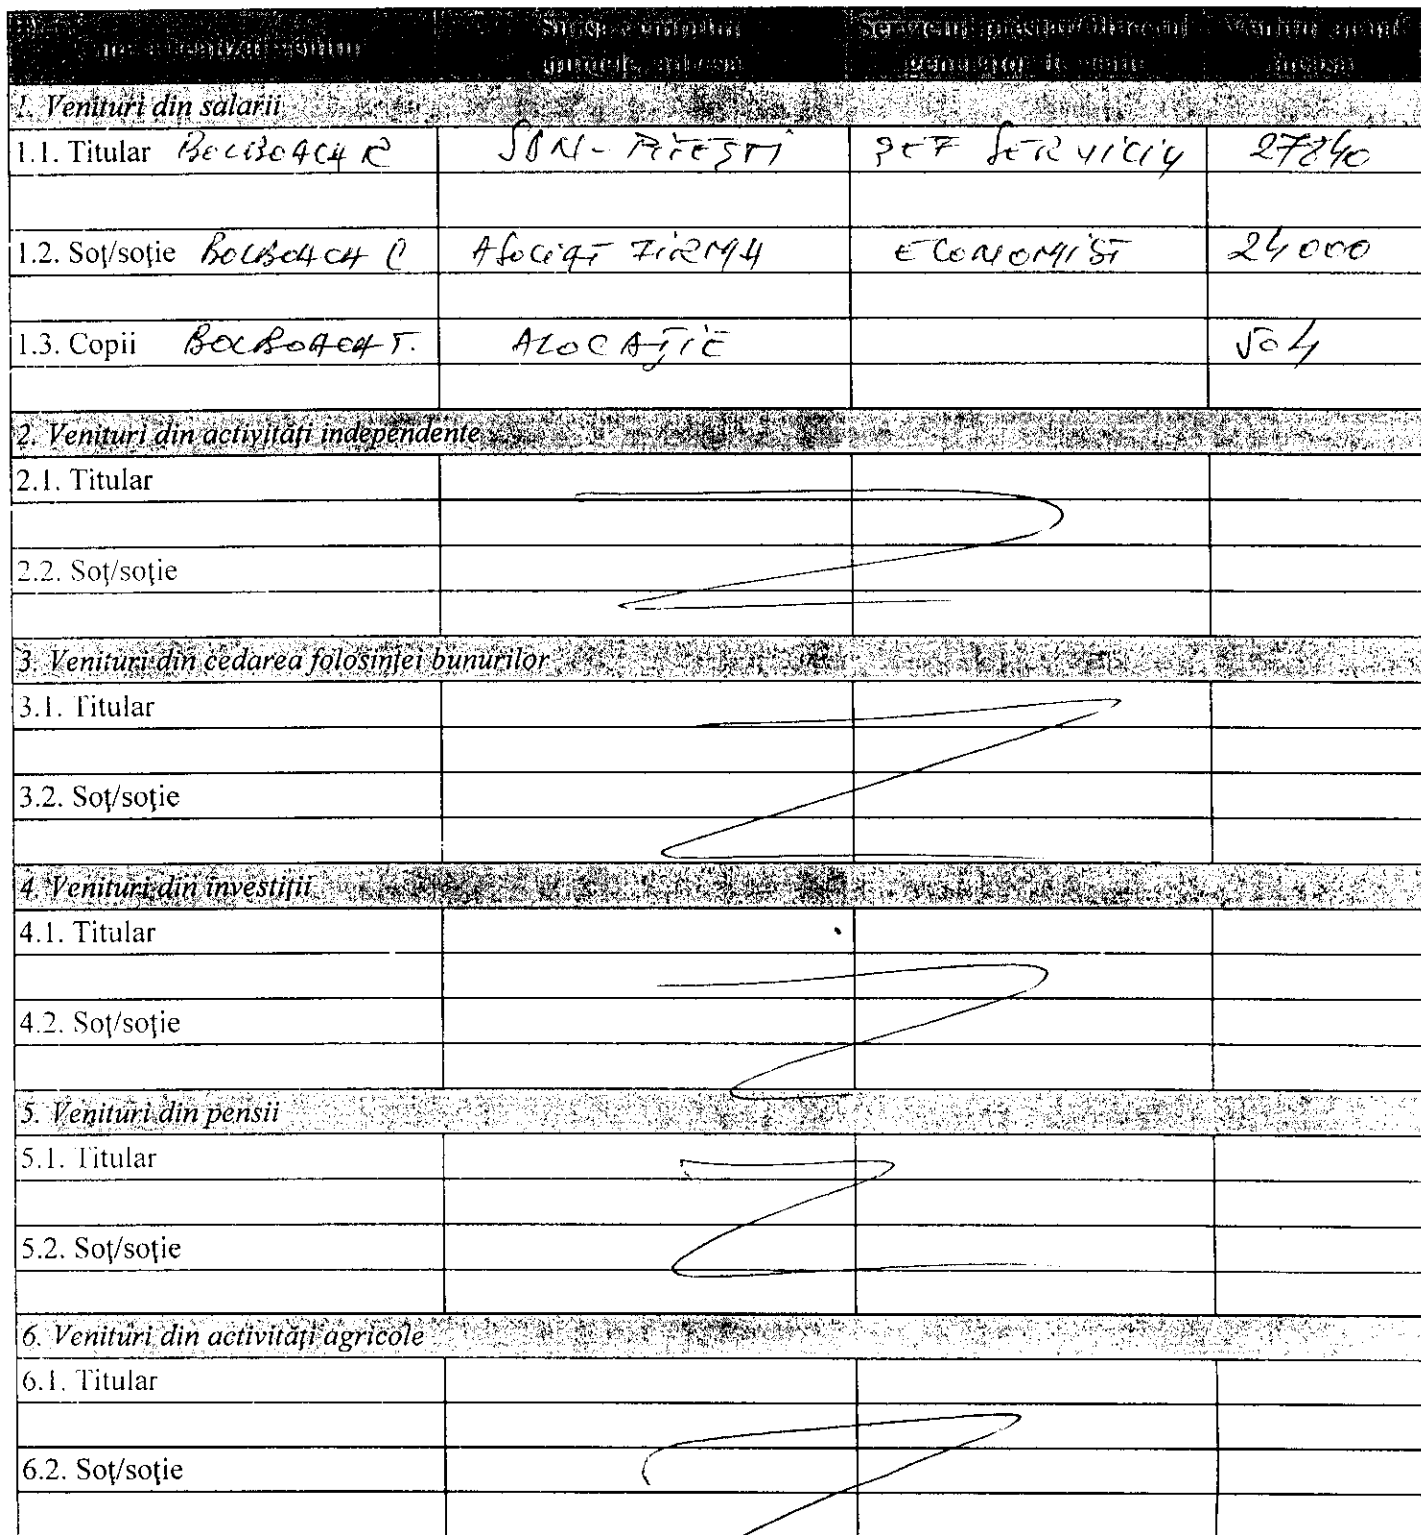 venitul
Serviciul prestat/Obiectul
generator de venit
1. Venituri din salarii
1.1. Titular BOLBOACA R SDN-PITEŞTI ŞEF SERVICIU 27840
1.2. Soţ/soţie BOLBOACA C ASOCIAT FIRMA ECONOMIST 24000
1.3. Copii BOLBOACA T. ALOCAŢIE 504
2. Venituri din activităţi independente
2.1. Titular
2.2. Soţ/soţie
3. Venituri din cedarea folosinţei bunurilor
3.1. Titular
3.2. Soţ/soţie
4. Venituri din investiţii
4.1. Titular
4.2. Soţ/soţie
5. Venituri din pensii
5.1. Titular
5.2. Soţ/soţie
6. Venituri din activităţi agricole
6.1. Titular
6.2. Soţ/soţie